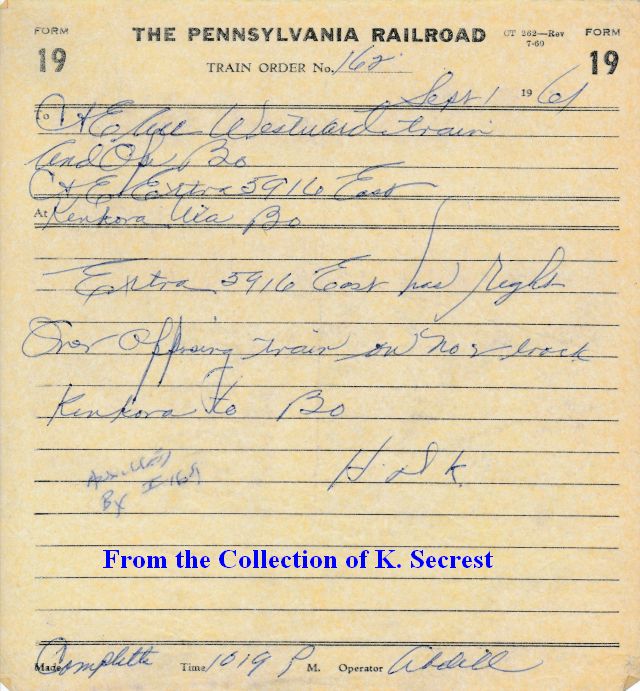 FORM 19
THE PENNSYLVANIA RAILROAD
CT 262—Rev
7-60
FORM 19
TRAIN ORDER No. 162
Sept 1 1961
To C+E All Westward train
And Op Bo
C+E Extra 5916 East
At Kenkora Via Bo
Extra 5916 East has right
Over Opposing train on No 2 track
Kenkora to Bo
H. D. K.
By 169
From the Collection of K. Secrest
Made Complete Time 1019 P M. Operator Abdill